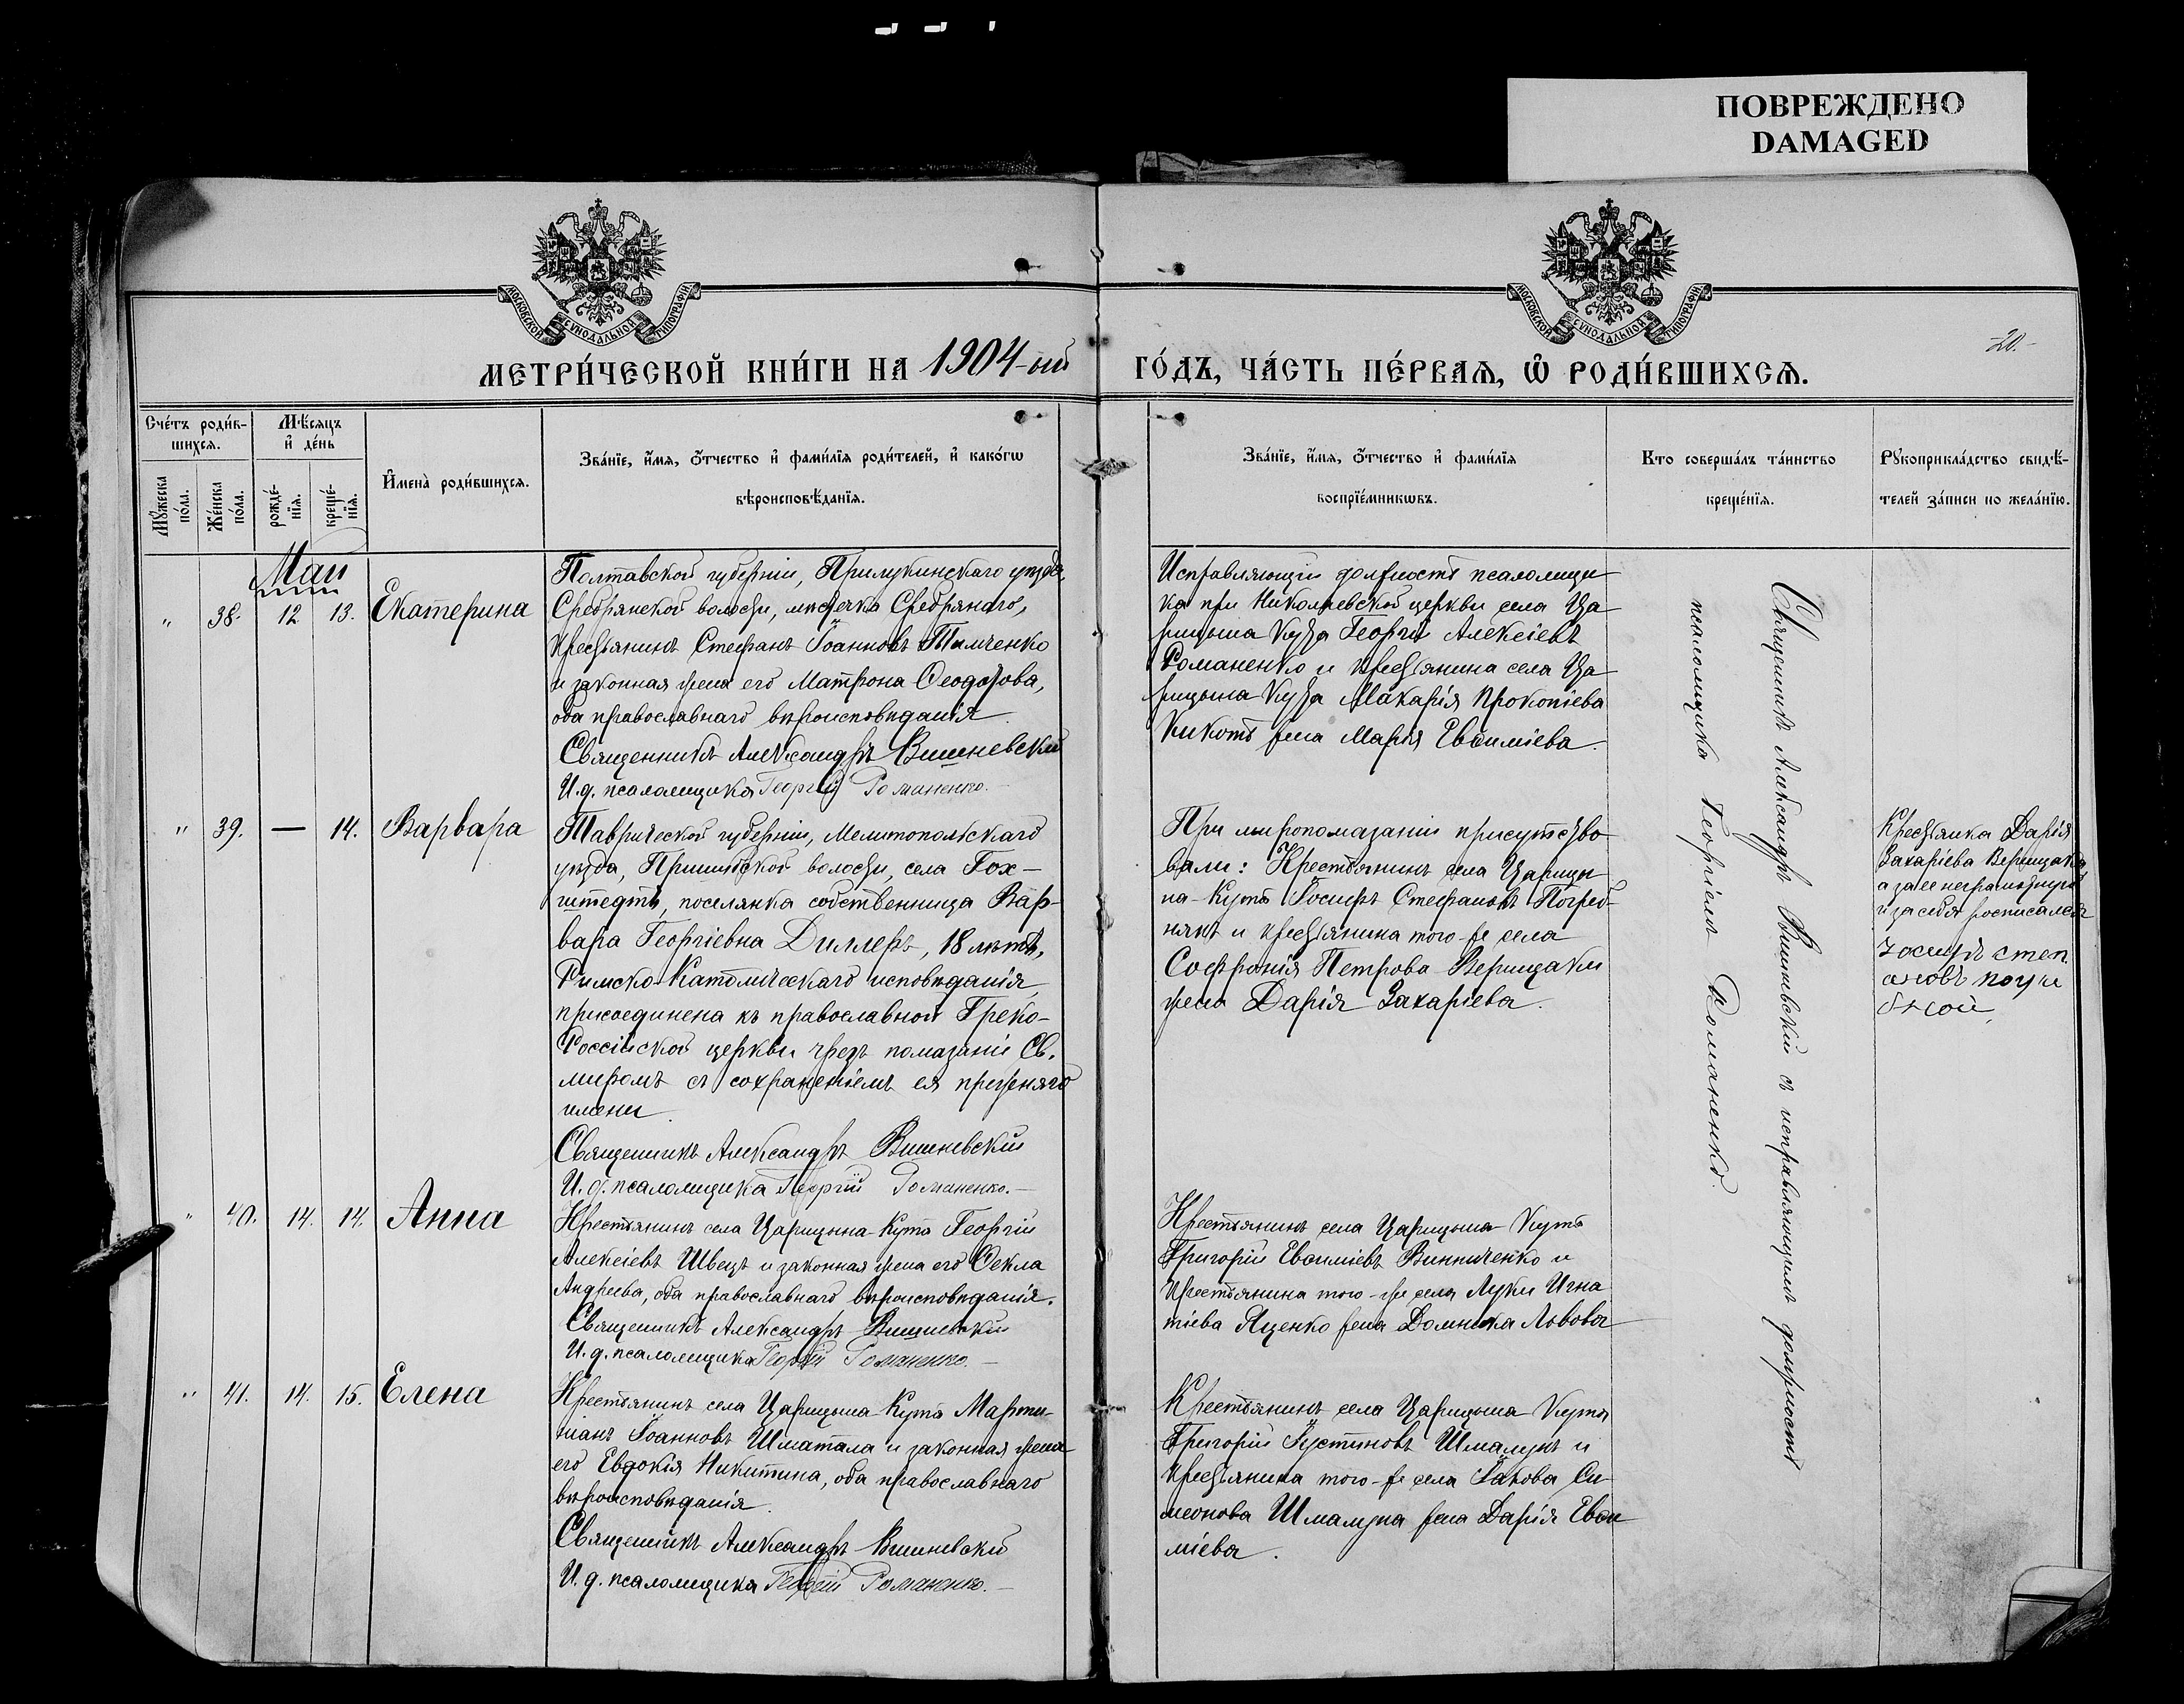 ПОВРЕЖДЕНО
DAMAGED
МОСКОВСКОЙ СѴНОДАЛЬНОЙ ТИПОГРАФІИ
МОСКОВСКОЙ СѴНОДАЛЬНОЙ ТИПОГРАФІИ
20.
МЕТРИ́ЧЕСКОЙ КНИ́ГИ НА 1904-ый
ГО́ДЪ, ЧА́СТЬ ПЕ́РВАЯ, Ѡ РОДИ́ВШИХСѦ.
Сче́тъ роди́в-
шихсѧ.
Мѣ́сѧцъ
и҆ де́нь
Мꙋ́жеска
по́ла.
Же́нска
по́ла.
рожде́-
нїѧ.
креще́-
нїѧ.
И҆мена̀ роди́вшихсѧ.
Зва́нїе, и҆́мѧ, ѻ҆́тчество и҆ фами́лїѧ роди́телей, и҆ како́гѡ
вѣроисповѣ́данїѧ.
Зва́нїе, и҆́мѧ, ѻ҆́тчество и҆ фами́лїѧ
воспрїе́мникѡвъ.
Кто соверша́лъ та́инство
креще́нїѧ.
Рꙋкоприкла́дство свидѣ́-
телей за́писи по жела́нїю.
Май
" 38. 12 13. Екатерина
Полтавской губерніи, Прилукинскаго уѣзда,
Сребрянской волости, мѣстечка Сребрянаго,
крестьянинъ Стефанъ Іоанновъ Тимченко
и законная жена его Матрона Ѳеодорова,
оба православнаго вѣроисповѣданія
Священникъ Александръ Вишневскій
И.д. псаломщика Георгій Романенко.
Исправляющій должность псаломщи-
ка при Николаевской церкви села Ца-
рицына Кута Георгій Алексіевъ
Романенко и крестьянина села Ца-
рицына Кута Макарія Прокопіева
Кикоть жена Марія Евѳиміева.
" 39. — 14. Варвара
Таврической губерніи, Мелитопольскаго
уѣзда, Пришибской волости, села Гох-
штедтъ, поселянка собственница Вар-
вара Георгіевна Диллеръ, 18 лѣтъ,
Римско-Католическаго исповѣданія
присоединена къ православной Греко-
Россійской церкви чрезъ помазаніе Св.
миромъ съ сохраненіемъ ея прежняго
имени.
Священникъ Александръ Вишневскій
И.д. псаломщика Георгій Романенко.
При миропомазаніи присутство-
вали: Крестьянинъ села Царицы-
на-Кута Іосифъ Стефановъ Погреб-
някъ и крестьянина того-же села
Софронія Петрова Верещаки
жена Дарія Захаріева.
Крестьянка Дарія
Захаріева Верещака
а за ее неграмотную
и за себя росписался
" 40. 14. 14. Анна
Крестьянинъ села Царицына-Кута Георгій
Алексіевъ Швецъ и законная жена его Ѳекла
Андреева, оба православнаго вѣроисповѣданія.
Священникъ Александръ Вишневскій
И.д. псаломщика Георгій Романенко.
Крестьянинъ села Царицына Кута
Григорій Евѳиміевъ Винниченко и
крестьянина того-же села Луки Игна
тіева Яценко жена Домника Львова
" 41. 14. 15. Елена
Крестьянинъ села Царицына-Кута Марти-
ніанъ Іоанновъ Шматала и законная жена
его Евдокія Никитина, оба православнаго
вѣроисповѣданія.
Священникъ Александръ Вишневскій
И.д. псаломщика Георгій Романенко.
Крестьянинъ села Царицына Кута
Григорій Іустиновъ Шмалунъ и
крестьянина того-же села Іакова Си-
меонова Шмалуна жена Дарія Евѳи
міева.
Священникъ Александръ Вишневскій съ исправляющимъ должность
псаломщика Георгіемъ Романенко.